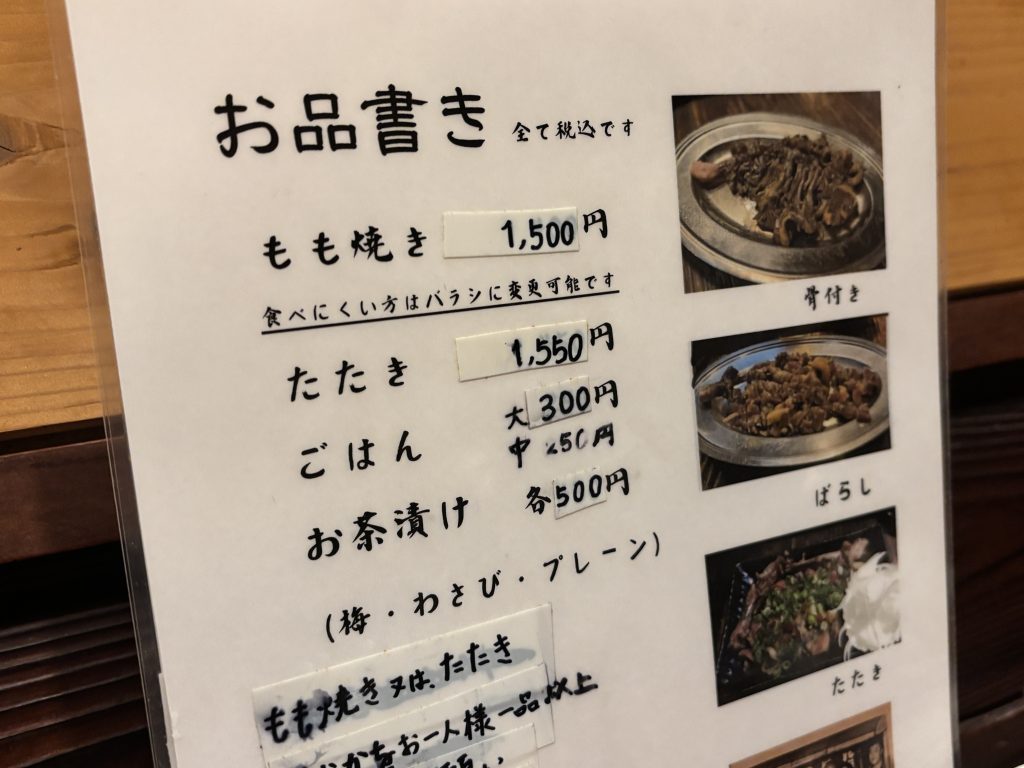 お品書き 全て税込です
もも焼き 1,500円
食べにくい方はバラシに変更可能です
たたき 1,550円
ごはん 大 300円
中 250円
お茶漬け 各500円
(梅・わさび・プレーン)
もも焼き又は、たたき
お一人様一品以上
骨付き
ばらし
たたき